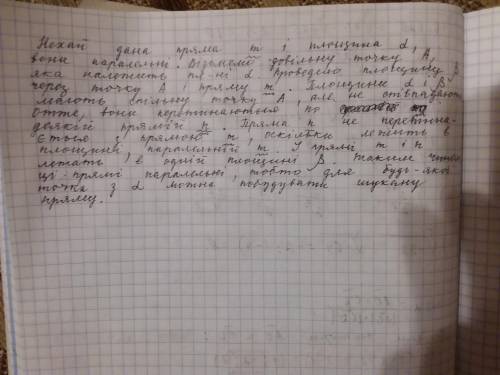 Нехай дана пряма m і площина α,
вони паралельні. Візьмемо довільну точку A,
яка належить пл-ні α. Проведемо площину β
через точку A і пряму m. Площини α і β
мають спільну точку A, але не співпадають
Отже, вони перетинаються по
деякій прямій n. Пряма n не перетина-
ється з прямою m, оскільки лежить в
площині, паралельній m. І прямі m і n
лежать в одній площині β. Таким чином
ці прямі паралельні, тобто для будь-якої
точки з α можна побудувати шукану
пряму.